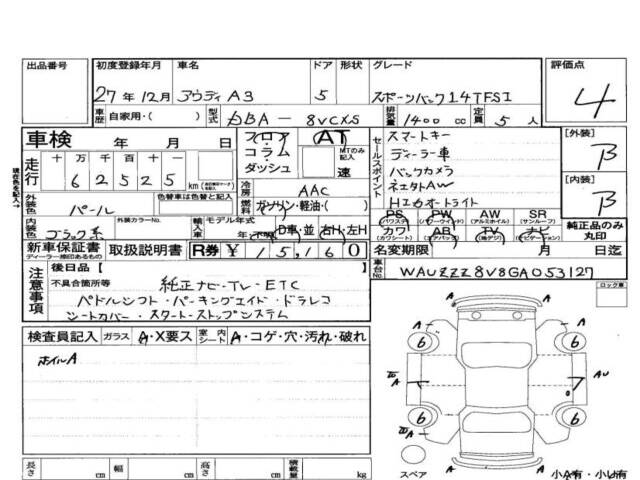 出品番号 初度登録年月 車名 ドア 形状 グレード 評価点
27年12月 アウディA3 5 スポーツバック1.4TFSI 4
車歴 自家用・( ) 型式 DBA-8VCXS 排気量 1400 cc 定員 5 人
車検 年 月 日 フロア コラム ダッシュ AT MTのみ記入 速 セールスポイント スマートキー [外装] B
現在色を記入→
走行 十 万 千 百 十 ディーラー車
6 2 5 2 5 km バックカメラ [内装] B
冷房 AAC
外装色 パール 色替車は色替と記入 燃料 ガソリン・軽油・( ) HIDオートライト
内装色 ブラック系 外装カラーNo. 輸入車 モデル年式 年 不明 D車・並 右H・左H
PS (パワステ) PW (パワーウインド) AW (アルミホイル) SR (サンルーフ)
カワ (カワシート) AB (エアバッグ) TV (地デジ) ナビ (ナビゲーション) 純正品のみ丸印
新車保証書 ディーラー捺印あるもの 取扱説明書 R券 ¥15,160 名変期限 月 日迄
注意事項 後日品[ ] 車台No. WAUZZZ8V8GA053127
不具合箇所等 純正ナビ・TV・ETC ロック車
パドルシフト・パーキングエイド・ドラレコ
シートカバー・スタートストップシステム
検査員記入 ガラス A・X要ス 室内シート A・コゲ・穴・汚れ・破れ
ホイルA
A A
6 6
A A AU
6 6
A A
長さ cm 幅 cm 高さ cm 積載量 kg スペア 小A有・小U有